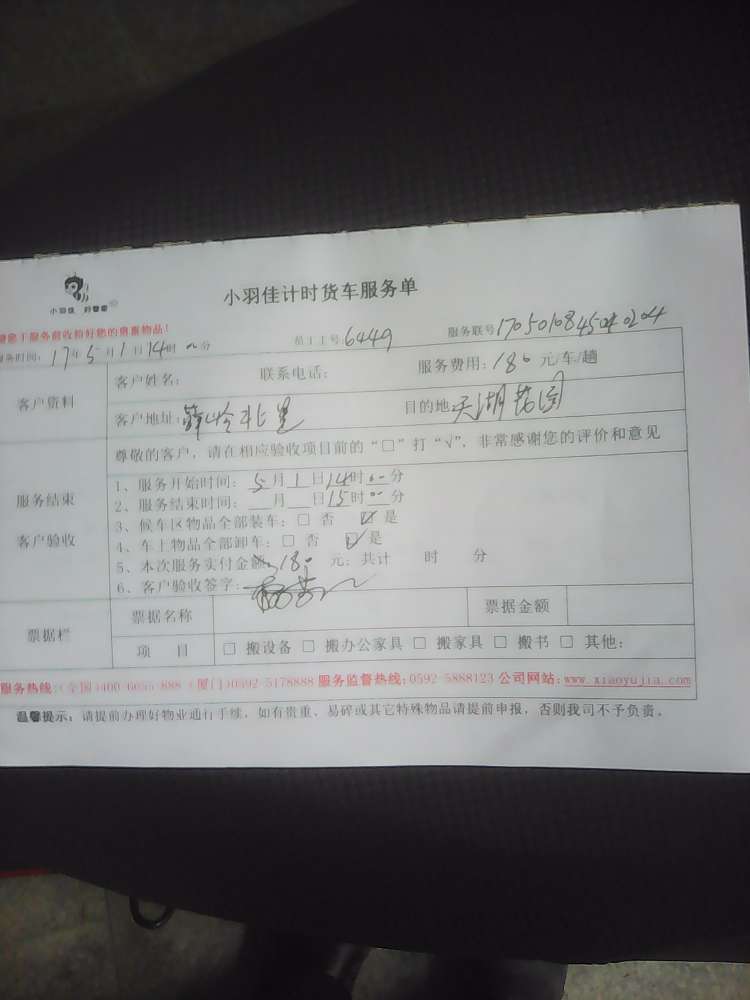 小羽佳 好管家
小羽佳计时货车服务单
您于服务前收拾好您的贵重物品!
服务时间: 17年5月1日14时00分 员工工号: 6449 服务联号
客户资料
客户姓名: 联系电话: 服务费用: 180 元/车/趟
客户地址: 薛岭北里 目的地: 天湖花园
尊敬的客户, 请在相应验收项目前的“□”打“√”, 非常感谢您的评价和意见
服务结束
客户验收
1、服务开始时间: 5月1日14时00分
2、服务结束时间: __月__日15时00分
3、候车区物品全部装车: □ 否 ☑ 是
4、车上物品全部卸车: □ 否 ☑ 是
5、本次服务实付金额 180 元: 共计 时 分
6、客户验收签字:
票据栏
票据名称 票据金额
项 目 □ 搬设备 □ 搬办公家具 □ 搬家具 □ 搬书 □ 其他:
服务热线: (全国)400-6055-888 (厦门)0592-5178888 服务监督热线: 0592-5888123 公司网站: www.xiaoyujia.com
温馨提示: 请提前办理好物业通行手续, 如有贵重、易碎或其它特殊物品请提前申报, 否则我司不予负责。